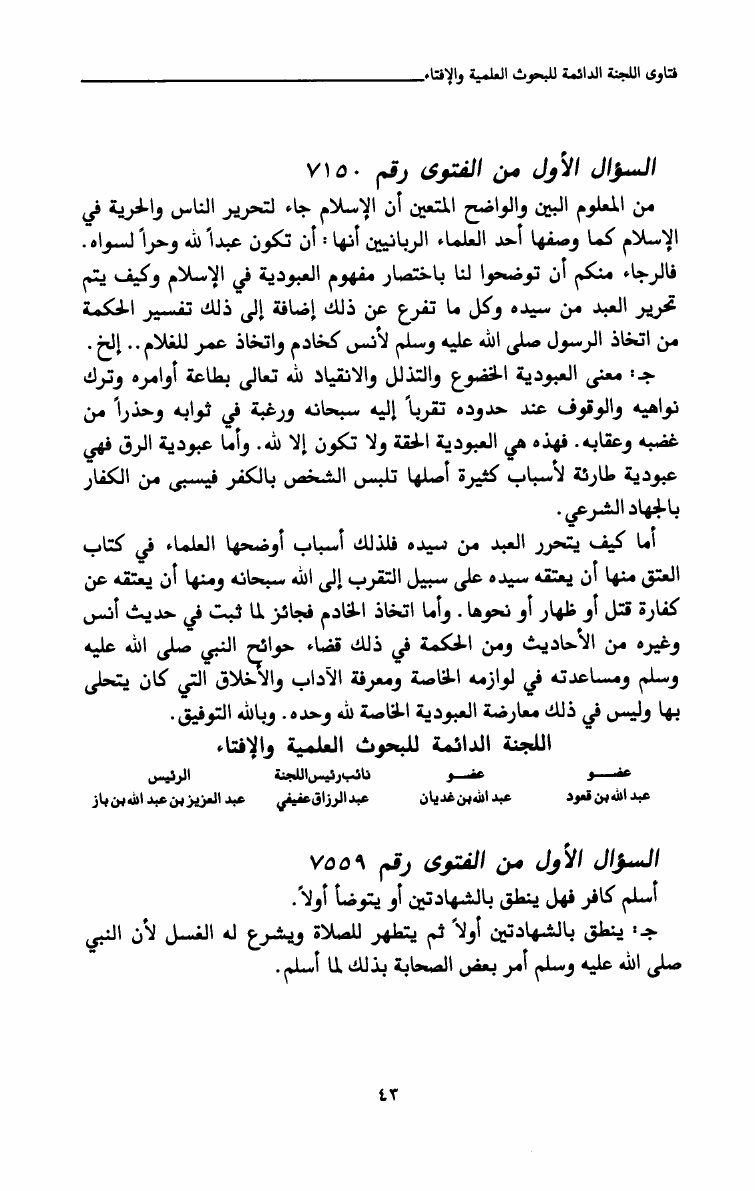 فتاوى اللجنة الدائمة للبحوث العلمية والإفتاء
السؤال الأول من الفتوى رقم ٧١٥٠
من المعلوم البين والواضح المتعين أن الإسلام جاء لتحرير الناس والحرية في
الإسلام كما وصفها أحد العلماء الربانيين أنها : أن تكون عبداً لله وحراً لسواه.
فالرجاء منكم أن توضحوا لنا باختصار مفهوم العبودية في الإسلام وكيف يتم
تحرير العبد من سيده وكل ما تفرع عن ذلك إضافة إلى ذلك تفسير الحكمة
من اتخاذ الرسول صلى الله عليه وسلم لأنس كخادم واتخاذ عمر للغلام.. إلخ.
جـ : معنى العبودية الخضوع والتذلل والانقياد لله تعالى بطاعة أوامره وترك
نواهيه والوقوف عند حدوده تقرباً إليه سبحانه ورغبة في ثوابه وحذراً من
غضبه وعقابه. فهذه هي العبودية الحقة ولا تكون إلا لله. وأما عبودية الرق فهي
عبودية طارئة لأسباب كثيرة أصلها تلبس الشخص بالكفر فيسبى من الكفار
بالجهاد الشرعي.
أما كيف يتحرر العبد من سيده فلذلك أسباب أوضحها العلماء في كتاب
العتق منها أن يعتقه سيده على سبيل التقرب إلى الله سبحانه ومنها أن يعتقه عن
كفارة قتل أو ظهار أو نحوها. وأما اتخاذ الخادم فجائز لما ثبت في حديث أنس
وغيره من الأحاديث ومن الحكمة في ذلك قضاء حوائج النبي صلى الله عليه
وسلم ومساعدته في لوازمه الخاصة ومعرفة الآداب والأخلاق التي كان يتحلى
بها وليس في ذلك معارضة العبودية الخاصة لله وحده. وبالله التوفيق.
اللجنة الدائمة للبحوث العلمية والإفتاء
عضـــو عضـــو نائب رئيس اللجنة الرئيس
عبد الله بن قعود عبد الله بن غديان عبد الرزاق عفيفي عبد العزيز بن عبد الله بن باز
السؤال الأول من الفتوى رقم ٧٥٥٩
أسلم كافر فهل ينطق بالشهادتين أو يتوضأ أولاً.
جـ : ينطق بالشهادتين أولاً ثم يتطهر للصلاة ويشرع له الغسل لأن النبي
صلى الله عليه وسلم أمر بعض الصحابة بذلك لما أسلم.
٤٣